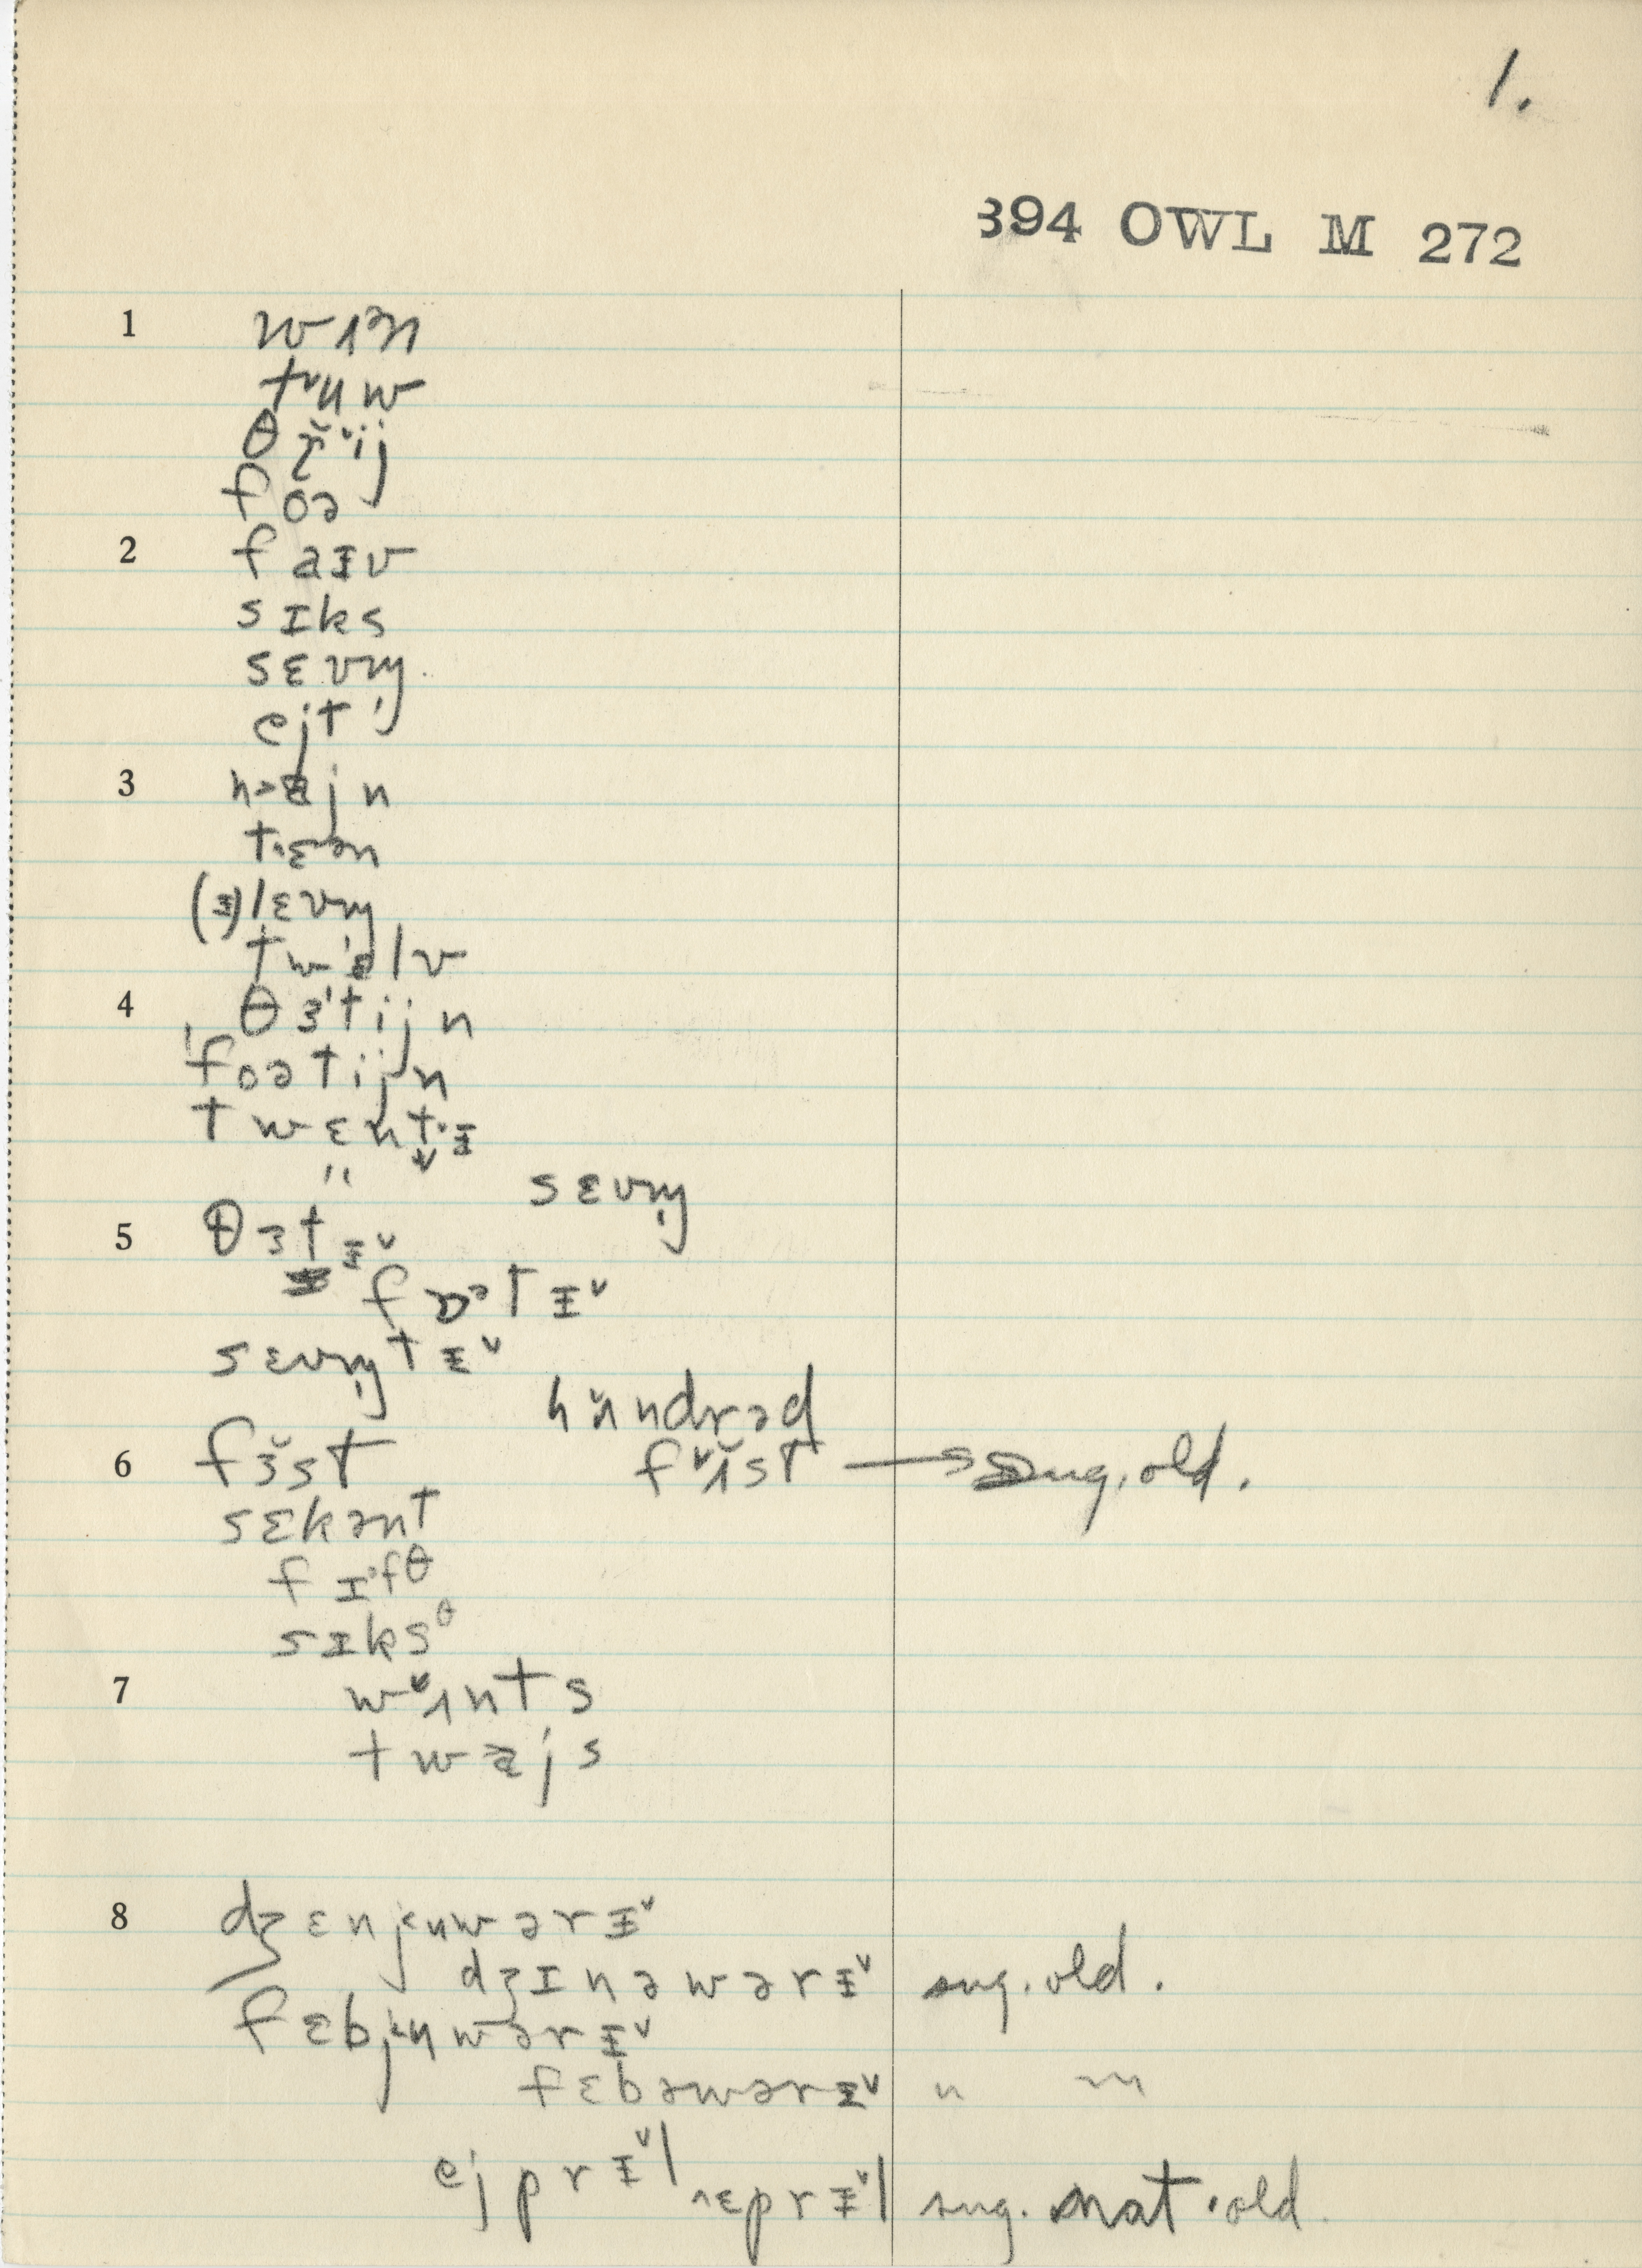 1.
394 OWL M 272
1 wʌən
tᵛʉw
θɹ̌ˇij
foə
2 faɪv
sɪks
sɛvn̩
ejt
3 n>ajn
t·ɛən
(ɪ)lɛvn̩
twɛlv
4 θɜ'tijn
'foətijn
twɛnt·ɪ
" sɛvn̩
5 θɜtɪˇ
fɒᵊtɪˇ
sɛvn̩tɪˇ
hʌ̌ndrəd
6 fɜ̌st fˇʌ̌st → sug. old.
sɛkənt
fɪ'fθ
sɪksᶿ
7 wˇʌnts
twajs
8 dʒɛnjʉwərɪˇ
dʒɪnəwərɪˇ sug. old.
fɛbjʉwərɪˇ
fɛbəwərɪˇ " "
ejprɪˇl
^ɛprɪˇl sug. nat. old.